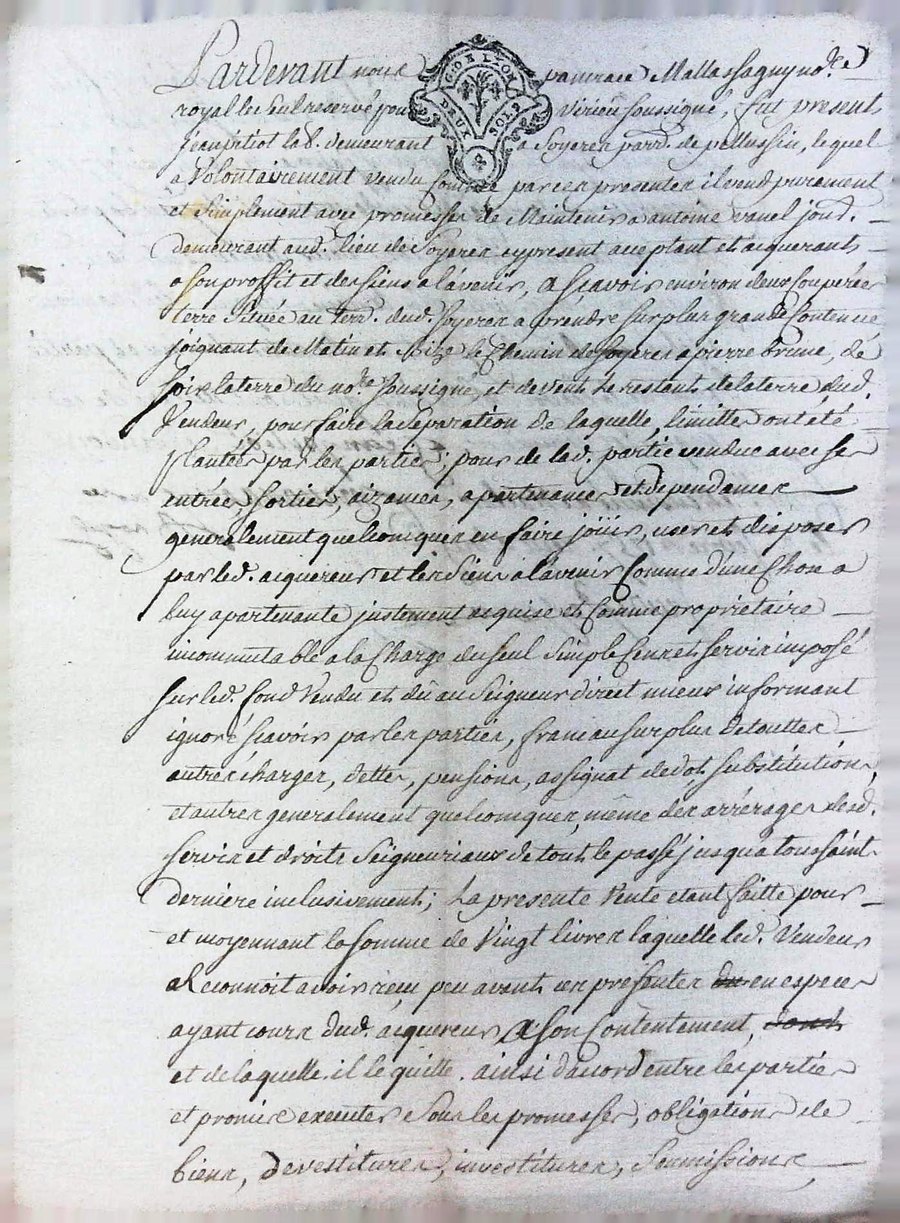 Pardevant nous pancrace Mallassagny no.re
royal les Sul reservé pour Virieu soussigné, fut present
jean pitiot la.r demeurant a Soyeres parr. de pellussin, lequel
a Volontairement vendu Comme par ces presentes il vend purement
et Simplement avec promesses de Maintenir a antoine vanel jour.
demeurant aud. lieu de Soyeres cy present acceptant et acquerant
a son proffit et des siens a l'avenir, a scavoir environ deux couperées
terre Située au terr. dud. Soyeres a prendre sur plus grande Contenue
joignant de Matin et Bize le Chemin de Soyeres a pierre brune, de
soir la terre du no.re soussigné, et de vent le restant de la terre dud.
Vendeur, pour faire la Separation de laquelle, limittes ont été
plantées par les parties; pour de lad. partie vendue avec ses
entrées sorties, aizances, apartenances et dependances
generalement quelconques en faire jouir, user et disposer
par led. aiquereur et les siens a l'avenir Comme d'une Chose a
luy apartenante justement acquise et Comme proprietaire
incommutable a la Charge du seul Simple Cens et servis imposé
sur led. fond Vendu et dû au Seigneur direct mieux informant
ignoré scavoir par les parties, franc au surplus de touttes
autres charges, dettes, pensions, assignat de dot substitution,
et autres generalement quelconques, même des arrérages desd.
servis et droits Seigneuriaux de tout le passé jusqu'a toussaint
derniere inclusivement; La presente Vente etant faitte pour
et moyennant la somme de Vingt livres laquelle led. Vendeur
a Reconnoit avoir reçu peu avant ces presentes en especes
ayant cours dud. aiquereur a son Contentement,
et de laquelle il le quitte. ainsi d'acord entre les parties
et promis executer Sous les promesses, obligations de
biens, devestitures, investitures, Soumissions
G. D E LYON
DEUX SOLS